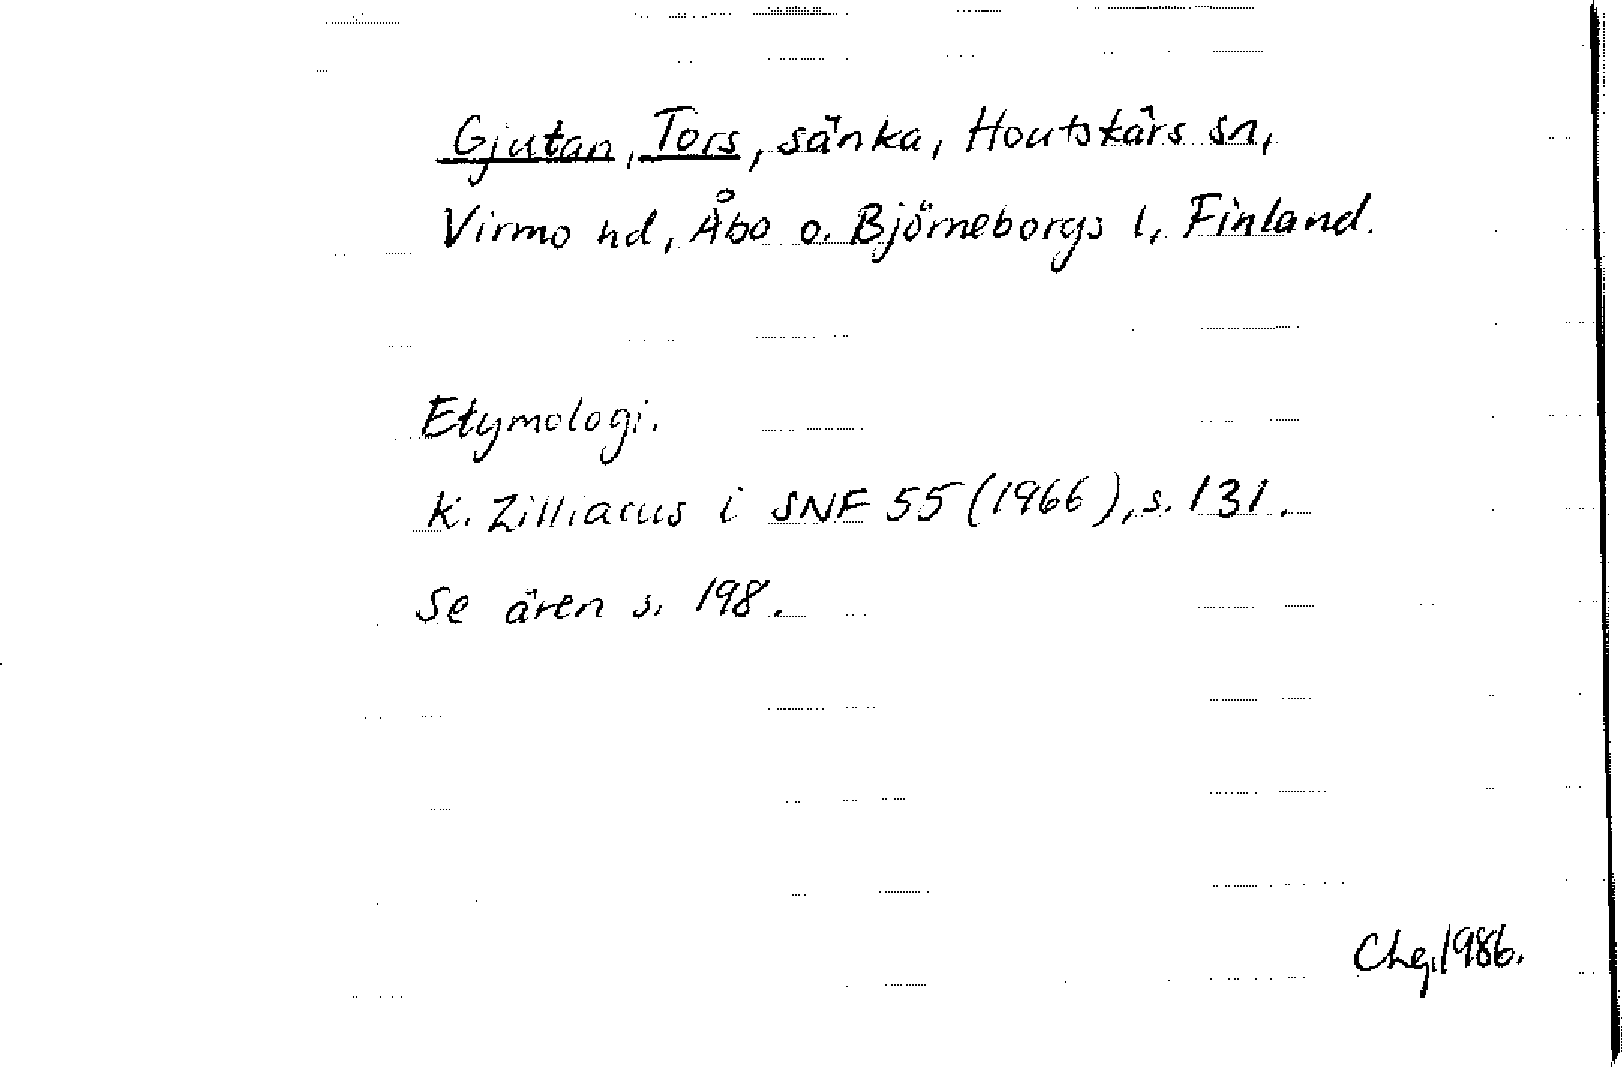 Gjutan, Tors, sänka, Houtskärs sn,
Virmo hd, Åbo o. Björneborgs l, Finland.
Etymologi.
K. Zilliacus i SNF 55 (1966), s. 131.
Se ären s. 198.
CLg. 1986.